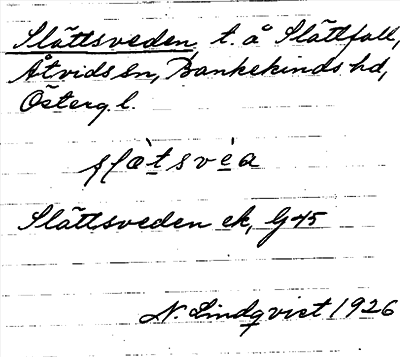 Slättsveden, t. å Slättfall,
Åtvids sn, Bankekinds hd,
Österg. l.
slæ̀tsvèa
Slättsveden ek, G 45
N. Lindqvist 1926